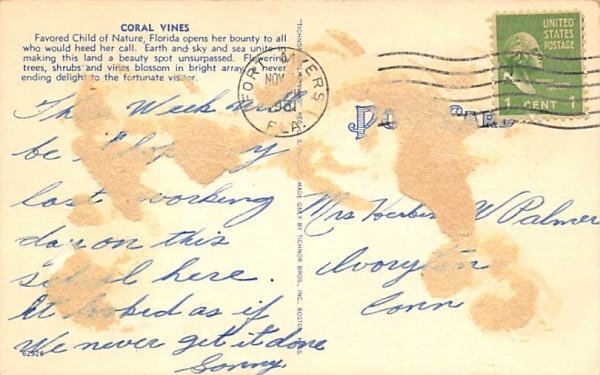 CORAL VINES
Favored Child of Nature, Florida opens her bounty to all
who would heed her call. Earth and sky and sea unite in
making this land a beauty spot unsurpassed. Flowering
trees, shrubs and vines blossom in bright array, a never
ending delight to the fortunate visitor.
This Week will
be
last working
day on this
here.
It looked as if
We never get it done
Sonny
62926
MADE ONLY BY TICHNOR BROS., INC., BOSTON,
FORT MYERS
NOV
FLA.
UNITED
STATES
POSTAGE
1 CENT 1
Mrs W Palmer
Ivoryton
Conn